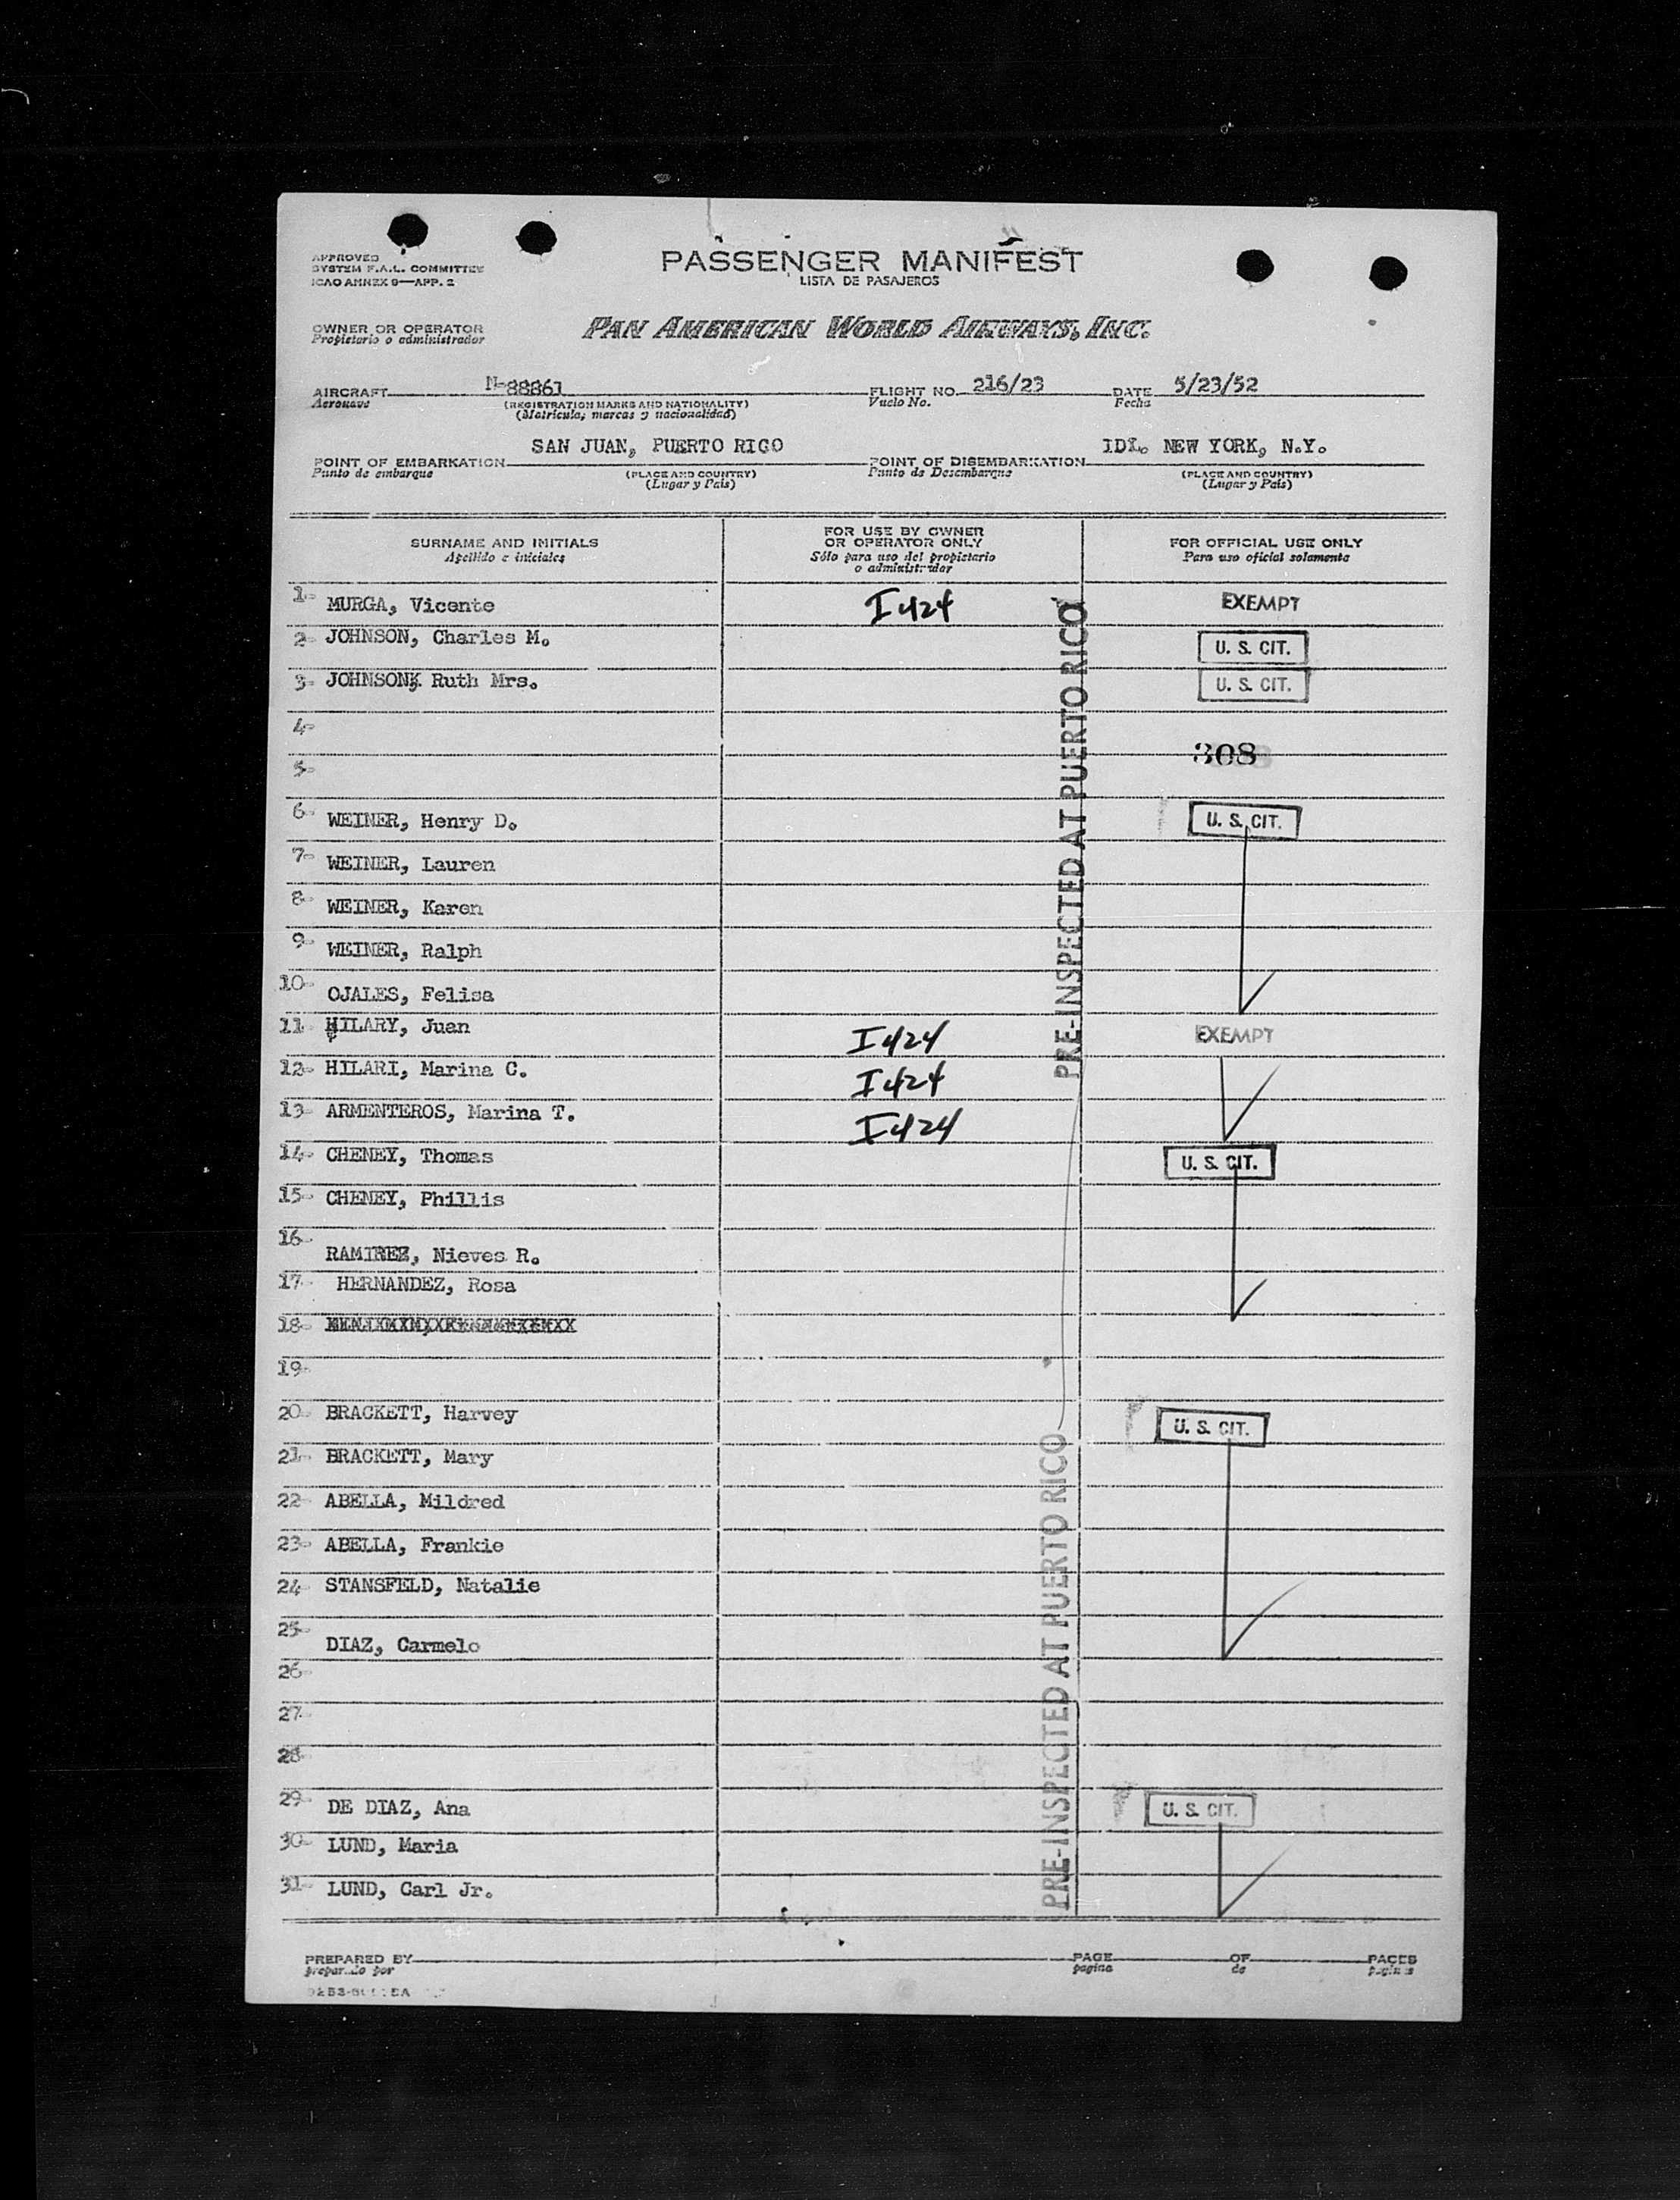 APPROVED
SYSTEM F.A.L. COMMITTEE
ICAO ANNEX 9—APP. 2
PASSENGER MANIFEST
LISTA DE PASAJEROS
OWNER OR OPERATOR
Propietario o administrador
PAN AMERICAN WORLD AIRWAYS, INC.
AIRCRAFT N-88861 FLIGHT NO. 216/23 DATE 5/23/52
Aeronave (REGISTRATION MARKS AND NATIONALITY) Vuelo No. Fecha
(Matricula, marcas y nacionalidad)
SAN JUAN, PUERTO RICO IDL. NEW YORK, N.Y.
POINT OF EMBARKATION (PLACE AND COUNTRY) POINT OF DISEMBARKATION (PLACE AND COUNTRY)
Punto de embarque (Lugar y Pais) Punto de Desembarque (Lugar y Pais)
SURNAME AND INITIALS
Apellido e iniciales
FOR USE BY OWNER
OR OPERATOR ONLY
Sólo para uso del propietario
o administrador
FOR OFFICIAL USE ONLY
Para uso oficial solamente
1- MURGA, Vicente I424 EXEMPT
2- JOHNSON, Charles M. U. S. CIT.
3- JOHNSON, Ruth Mrs. U. S. CIT.
4-
308
5-
6- WEINER, Henry D. U. S. CIT.
7- WEINER, Lauren
8- WEINER, Karen
9- WEINER, Ralph
10- OJALES, Felisa
11 HILARY, Juan I424 EXEMPT
12- HILARI, Marina C. I424
13- ARMENTEROS, Marina T. I424
14- CHENEY, Thomas U. S. CIT.
15- CHENEY, Phillis
16- RAMIREZ, Nieves R.
17- HERNANDEZ, Rosa
18-
19-
20- BRACKETT, Harvey U. S. CIT.
21- BRACKETT, Mary
22- ABELLA, Mildred
23- ABELLA, Frankie
24- STANSFELD, Natalie
25- DIAZ, Carmelo
26-
27-
28-
29- DE DIAZ, Ana U. S. CIT.
30- LUND, Maria
31- LUND, Carl Jr.
PRE-INSPECTED AT PUERTO RICO
PRE-INSPECTED AT PUERTO RICO
PREPARED BY PAGE OF PAGES
preparado por pagina de paginas